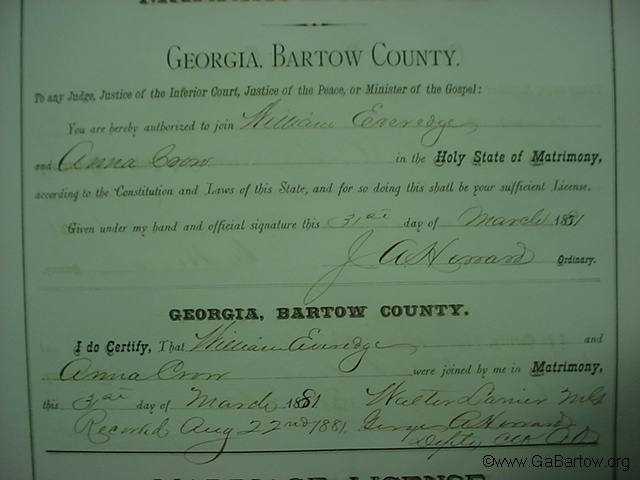 GEORGIA, BARTOW COUNTY.
To any Judge, Justice of the Inferior Court, Justice of the Peace, or Minister of the Gospel:
You are hereby authorized to join William Everedge
and Anna Crow in the Holy State of Matrimony,
according to the Constitution and Laws of this State, and for so doing this shall be your sufficient License.
Given under my hand and official signature this 31st day of March 1881
J A Howard Ordinary.
GEORGIA, BARTOW COUNTY.
I do Certify, That William Everedge and
Anna Crow were joined by me in Matrimony,
this 31st day of March 1881. Walter
Recorded Aug 22nd 1881. George A Howard
Depty
MARRIAGE LICENSE
©www.GaBartow.org